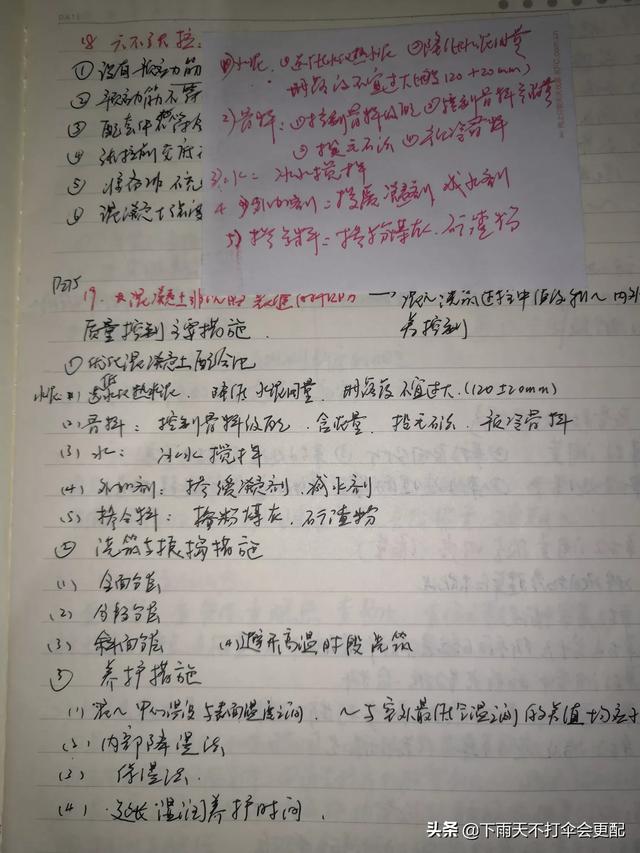 DATE
18 六不张拉:
① 没有预应力筋
② 预应力筋不
③ 配套件不
④ 张拉前交底
⑤
⑥ 混凝土强度
①水泥 ①选低水化热水泥 ②降低水泥用量
坍落度不宜过大(120±20mm)
2) 骨料: ①控制骨料级配 ②控制骨料含泥量
③ 投毛石法 ④预冷骨料
3) 水: 冰水搅拌
4 外加剂: 掺缓凝剂 减水剂
5) 掺合料: 掺粉煤灰. 矿渣粉
P275
19. 大混凝土
质量控制主要措施.
①优化混凝土配合比
水泥 (1) 选低水化热水泥. 降低水泥用量. 坍落度不宜过大.(120±20mm)
(2) 骨料: 控制骨料级配. 含泥量. 投毛石法. 预冷骨料
(3) 水: 冰水搅拌
(4) 外加剂: 掺缓凝剂. 减水剂
(5) 掺合料: 掺粉煤灰. 矿渣粉
② 浇筑与振捣措施
(1) 全面分层
(2) 分段分层
(3) 斜面分层 (4)避开高温时段浇筑
③ 养护措施
(1) 混~中心温度与表面温度之间. ~与室外最低气温之间的差值均应
(2) 内部降温法
(3) 保湿法.
(4) 延长湿润养护时间.
头条 @下雨天不打伞会更配